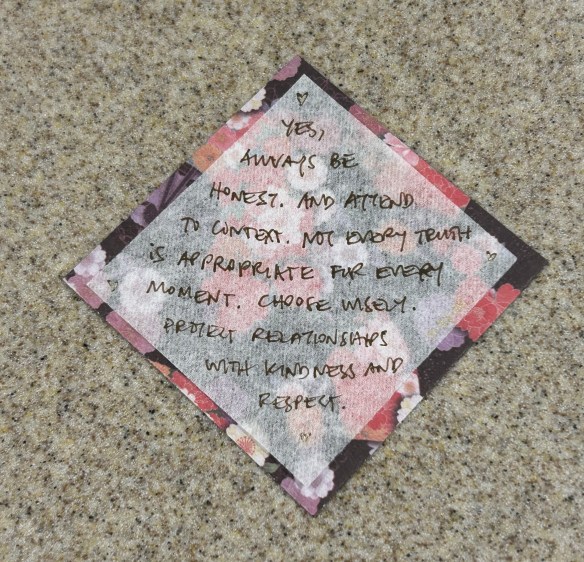 YES,
ALWAYS BE
HONEST. AND ATTEND
TO CONTEXT. NOT EVERY TRUTH
IS APPROPRIATE FOR EVERY
MOMENT. CHOOSE WISELY.
PROTECT RELATIONSHIPS
WITH KINDNESS AND
RESPECT.